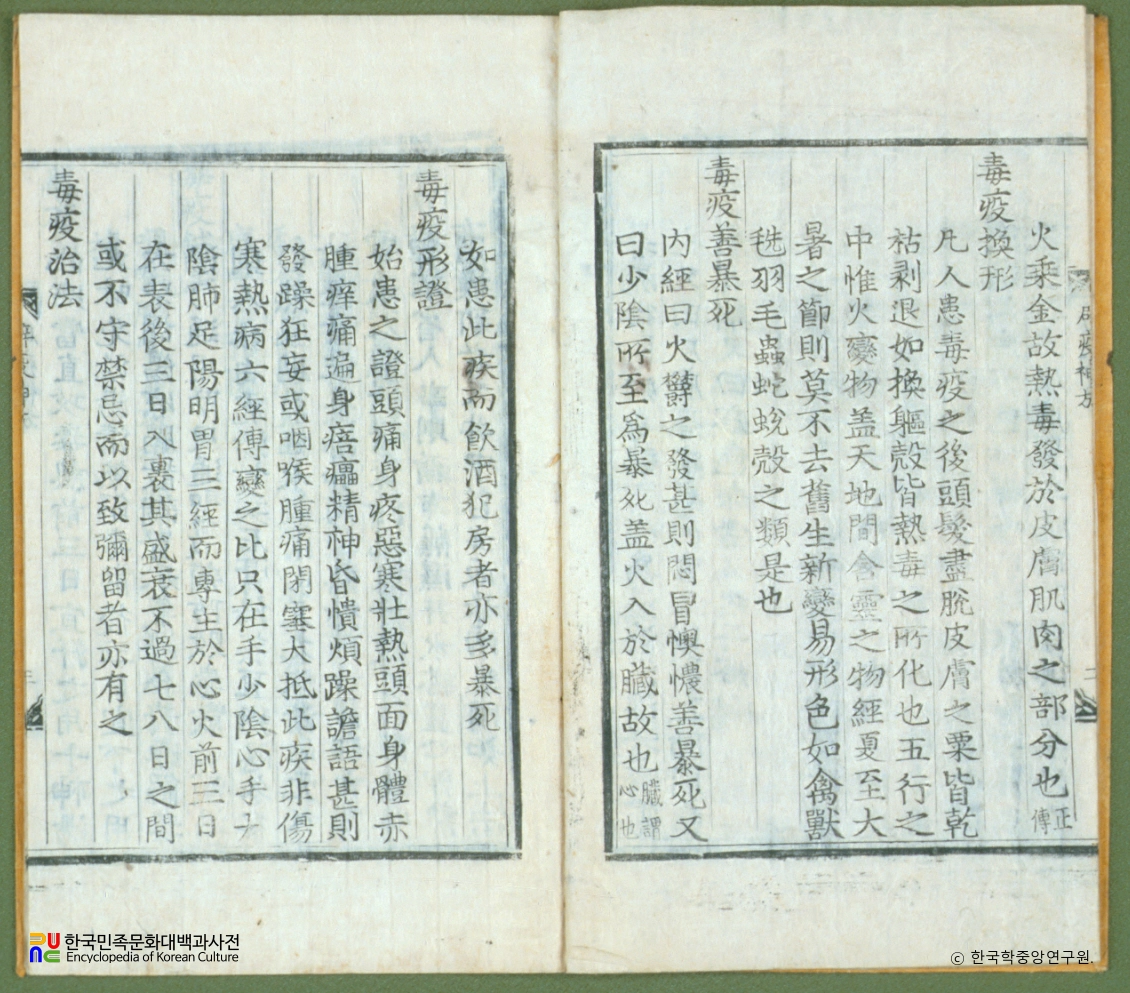 火乘金故熱毒發於皮膚肌肉之部分也正傳
毒疫換形
凡人患毒疫之後頭髮盡脫皮膚之粟皆乾
枯剥退如換軀殼皆熱毒之所化也五行之
中惟火變物盖天地間含靈之物經夏至大
暑之節則莫不去舊生新變易形色如禽獸
毨羽毛蟲蛇蛻殼之類是也
毒疫善暴死
內經曰火欝之發甚則悶冒懊憹善暴死又
曰少陰所至爲暴死盖火入於臟故也臟謂心也
如患此疾而飮酒犯房者亦多暴死
毒疫形證
始患之證頭痛身疼惡寒壯熱頭面身體赤
腫痒痛遍身㾦㿔精神昏憒煩躁譫語甚則
發躁狂妄或咽喉腫痛閉塞大抵此疾非傷
寒熱病六經傳變之比只在手少陰心手太
陰肺足陽明胃三經而專生於心火前三日
在表後三日入裏其盛衰不過七八日之間
或不守禁忌而以致彌留者亦有之
毒疫治法
한국민족문화대백과사전
Encyclopedia of Korean Culture
© 한국학중앙연구원.